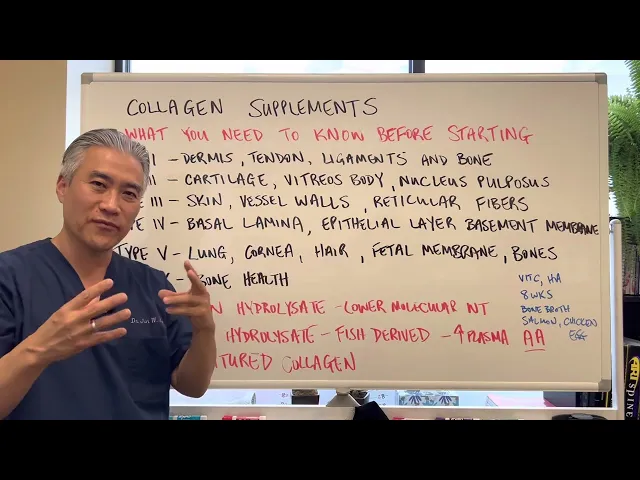 COLLAGEN SUPPLEMENTS
WHAT YOU NEED TO KNOW BEFORE STARTING
I - DERMIS, TENDON, LIGAMENTS AND BONE
II - CARTILAGE, VITREOS BODY, NUCLEUS PULPOSUS
III - SKIN, VESSEL WALLS, RETICULAR FIBERS
IV - BASAL LAMINA, EPITHELIAL LAYER BASEMENT MEMBRANE
TYPE V - LUNG, CORNEA, HAIR, FETAL MEMBRANE, BONES
- BONE HEALTH
VITC, HA
8 WKS
BONE BROTH
SALMON, CHICKEN
EGG
HYDROLYSATE - LOWER MOLECULAR WT
HYDROLYSATE - FISH DERIVED - ↑ PLASMA AA
COLLAGEN
Dr.
SPINE